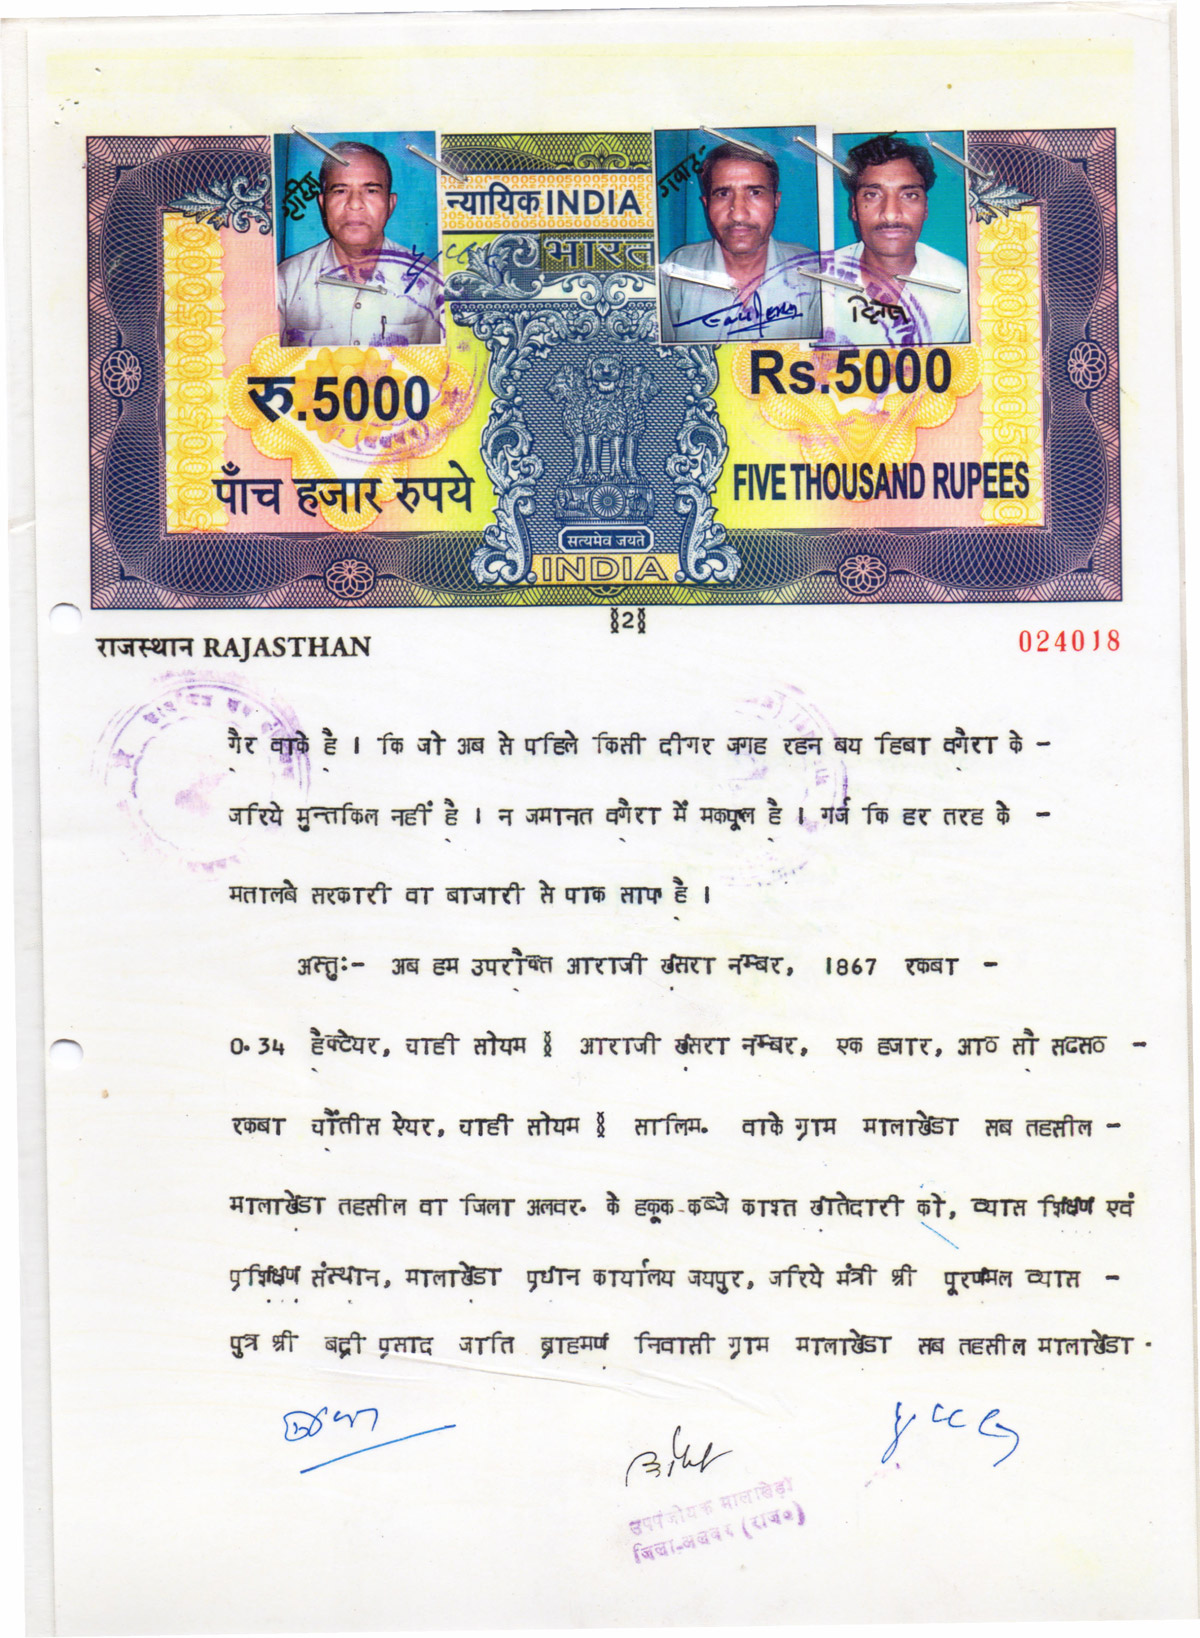 गृहिता
गवाह-
न्यायिक INDIA
भारत
रु.5000
Rs.5000
पाँच हजार रुपये
FIVE THOUSAND RUPEES
सत्यमेव जयते
INDIA
§2§
राजस्थान RAJASTHAN
024018
गैर वाके है । कि जो अब से पहिले किसी दीगर जगह रहन बय हिबा वगैरा के -
जरिये मुन्तकिल नहीं है । न जमानत वगैरा में मकफूल है । गर्ज कि हर तरह के -
मतालबे सरकारी वा बाजारी से पाक साफ है ।
अस्तुः- अब हम उपरोक्त आराजी खसरा नम्बर, 1867 रकबा -
0.34 हैक्टेयर, चाही सोयम § आराजी खसरा नम्बर, एक हजार, आठ सौ सदसठ -
रकबा चौंतीस ऐयर, चाही सोयम § सालिम. वाके ग्राम मालाखेडा सब तहसील -
मालाखेडा तहसील वा जिला अलवर. के हकूक-कब्जे काश्त खातेदारी को, व्यास शिक्षण एवं
प्रशिक्षण संस्थान, मालाखेडा प्रधान कार्यालय जयपुर, जरिये मंत्री श्री पूरणमल व्यास -
पुत्र श्री बद्री प्रसाद जाति ब्राहमण निवासी ग्राम मालाखेडा सब तहसील मालाखेडा .
उपपंजीयक मालाखेड़ा
जिला-अलवर (राज०)